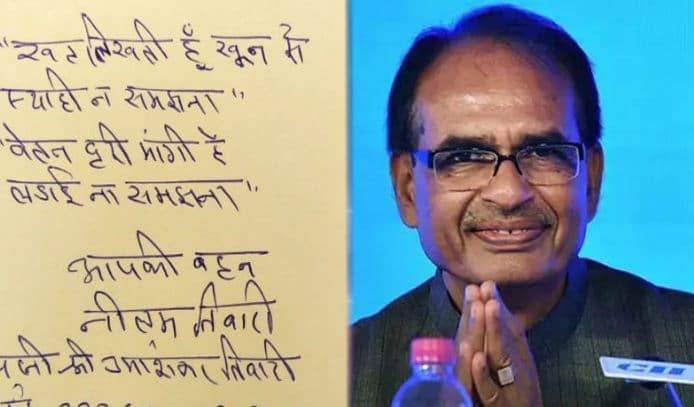 "खत लिखती हूँ खून से
स्याही न समझना"
"वेतन वृत्ती मांगी है
लडाई ना समझना"
आपकी बहन
नीलम तिवारी
श्री उमाशंकर तिवारी
CII